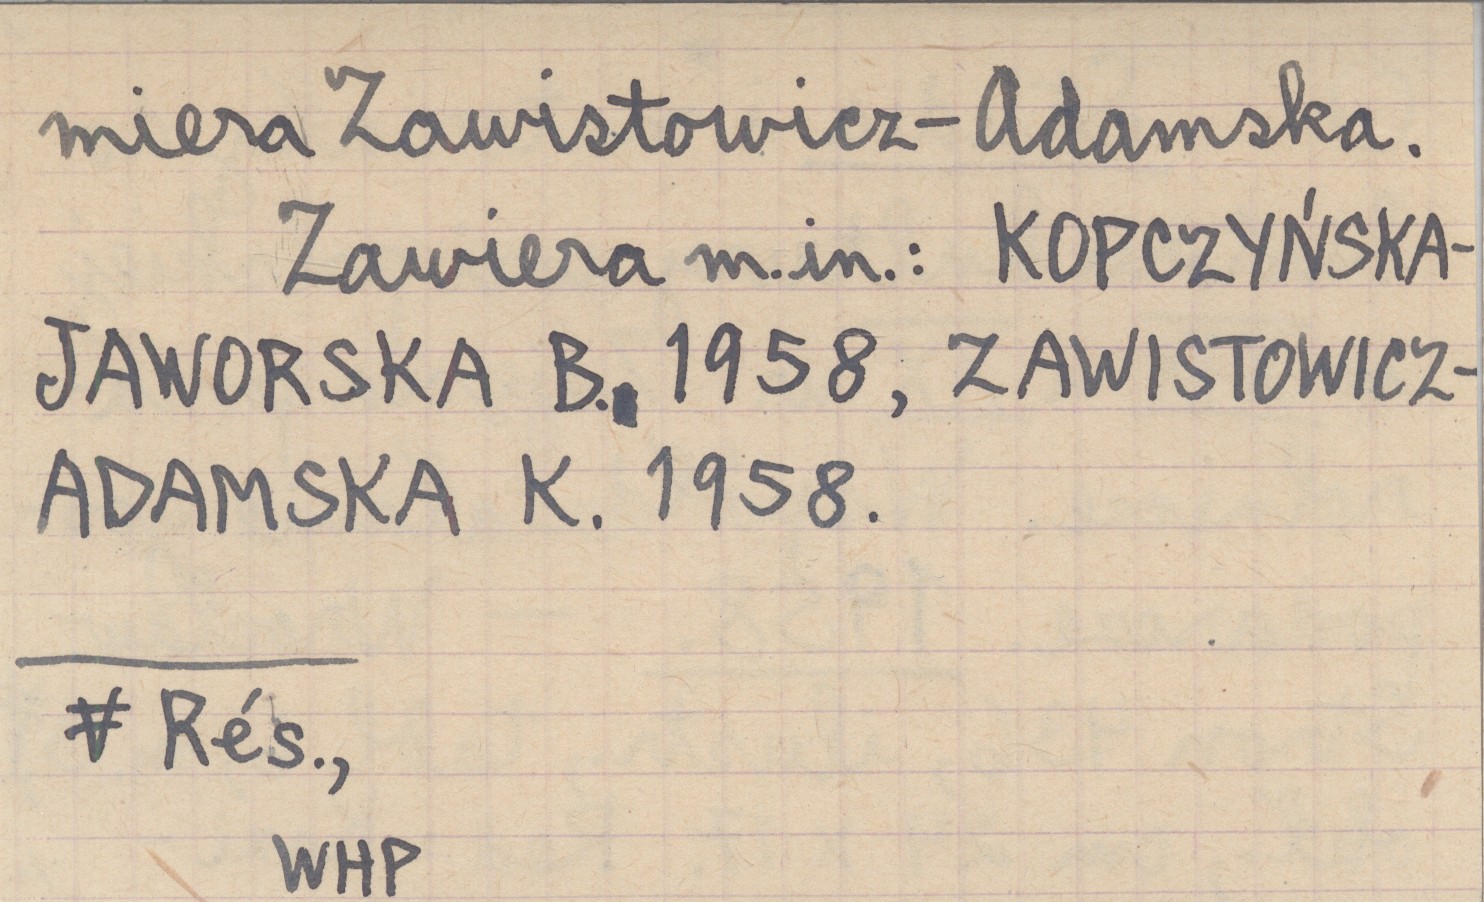 miera Zawistowicz-Adamska.
Zawiera m.in.: KOPCZYŃSKA-
JAWORSKA B. 1958, ZAWISTOWICZ-
ADAMSKA K. 1958.
Rés.,
WHP